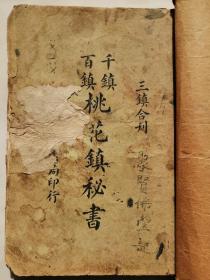 三鎮合刋
千鎮
百鎮
桃花鎮秘書
局印行